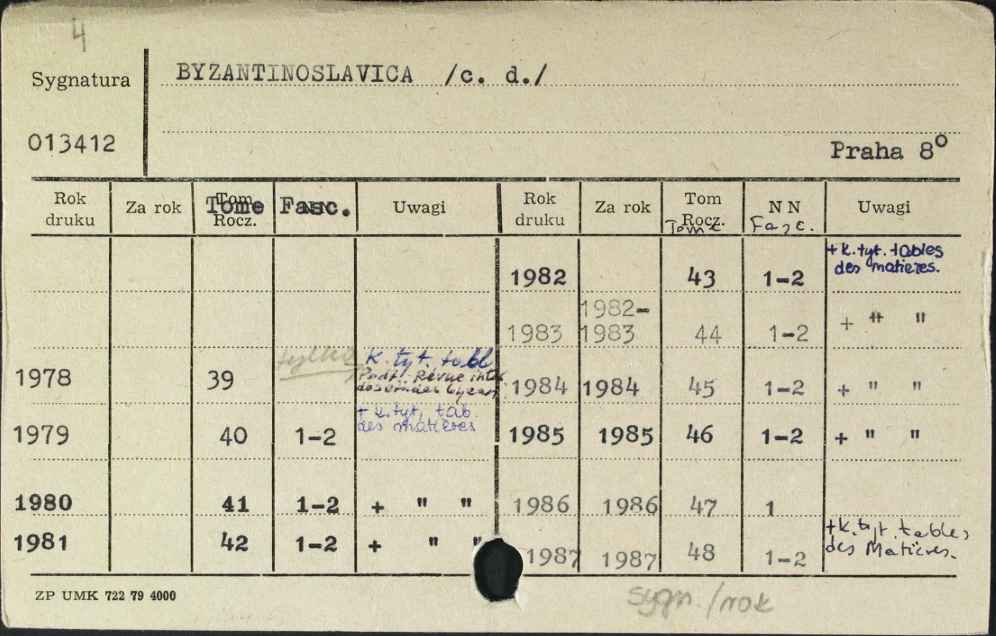 4
Sygnatura
BYZANTINOSLAVICA /c. d./
013412
Praha 8°
Rok druku Za rok Tom Rocz. Tome Fasc. Uwagi Rok druku Za rok Tom Rocz. Tome N N Fasc. Uwagi
1982 43 1-2 + k. tyt. tables des matieres.
1983 1982-1983 44 1-2 + " "
1978 39 tylko k. tyt. tabl
Revue
1984 1984 45 1-2 + " "
1979 40 1-2 + k. tyt. tab. des matieres
1985 1985 46 1-2 + " "
1980 41 1-2 + " "
1986 1986 47 1
1981 42 1-2 + " "
1987 1987 48 1-2 + k. tyt. tables des Matières.
ZP UMK 722 79 4000
sygn./rok